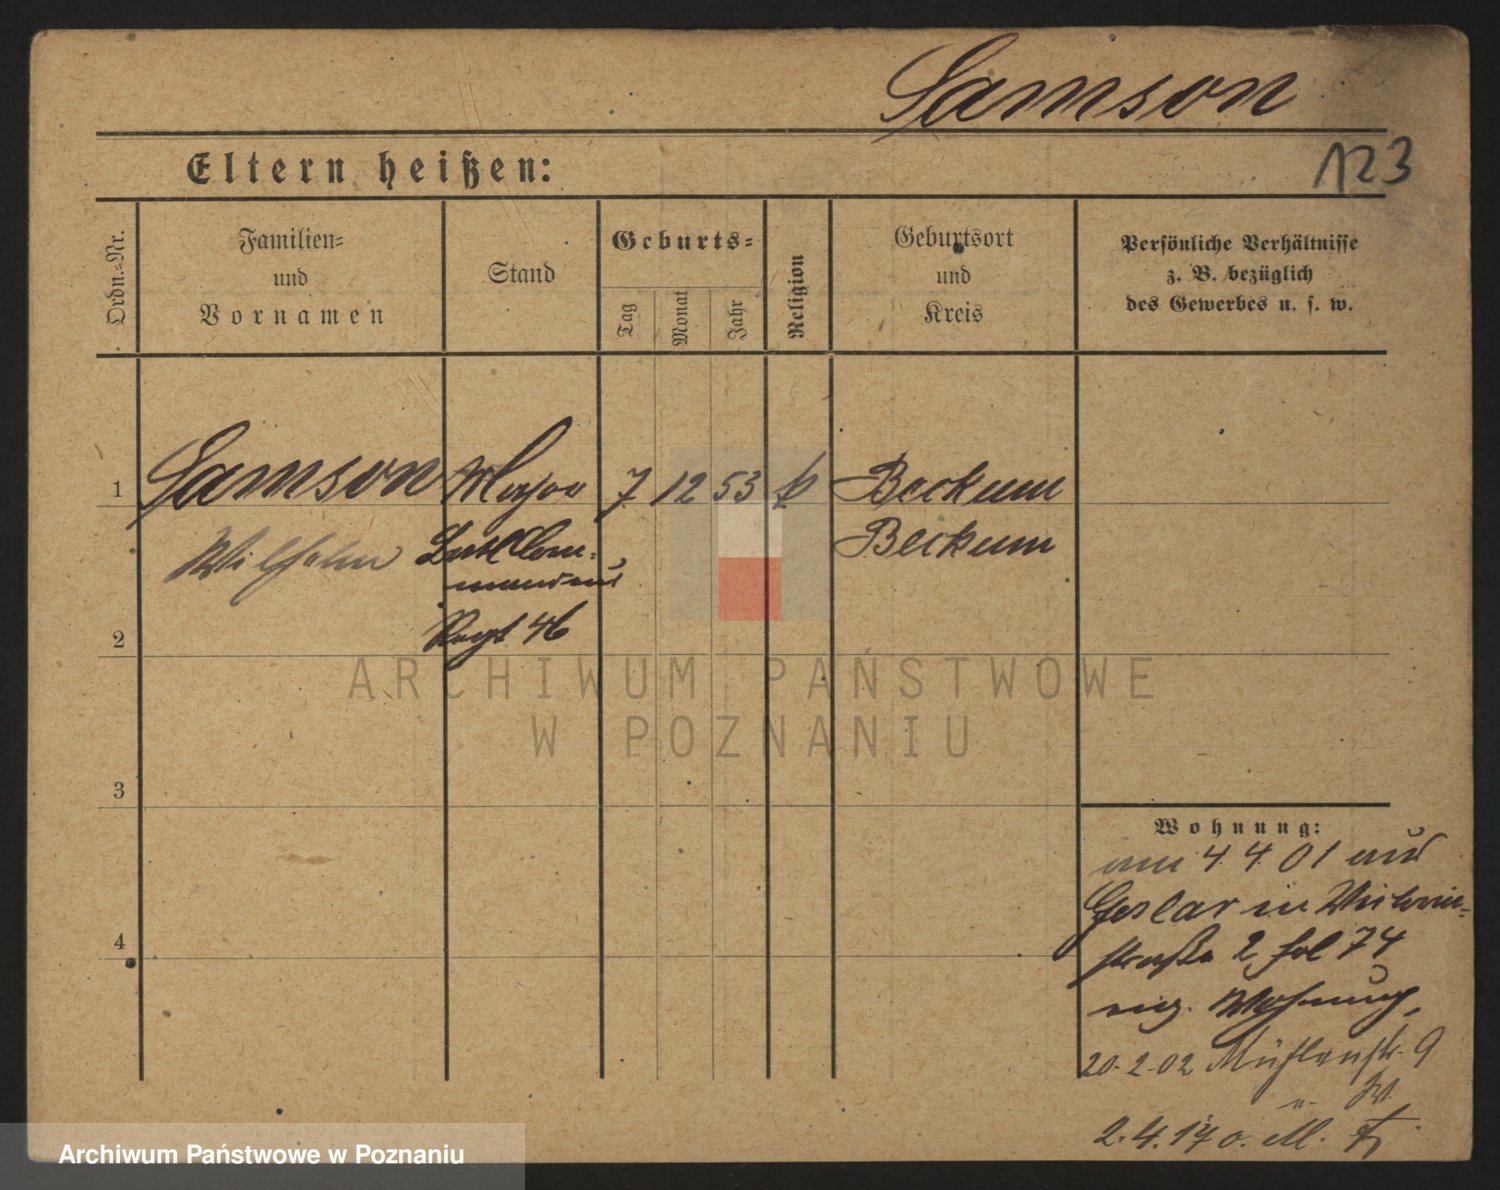 Samson
123
Eltern heißen:
Ordn.-Nr.
Familien-
und
Vornamen
Stand
Geburts-
Tag
Monat
Jahr
Religion
Geburtsort
und
Kreis
Persönliche Verhältnisse
z. B. bezüglich
des Gewerbes u. s. w.
1 Samson Major 7 12 53 k Beckum
Wilhelm Com-
mandeur Beckum
Regt 46
2
3
4
ARCHIWUM PAŃSTWOWE
W POZNANIU
Wohnung:
am 4. 4. 01 aus
Goslar in
straße 2, fol 74
eig. Wohnung,
20.2.02 Mühlenstr. 9
W.
2.4. o. M.
Archiwum Państwowe w Poznaniu